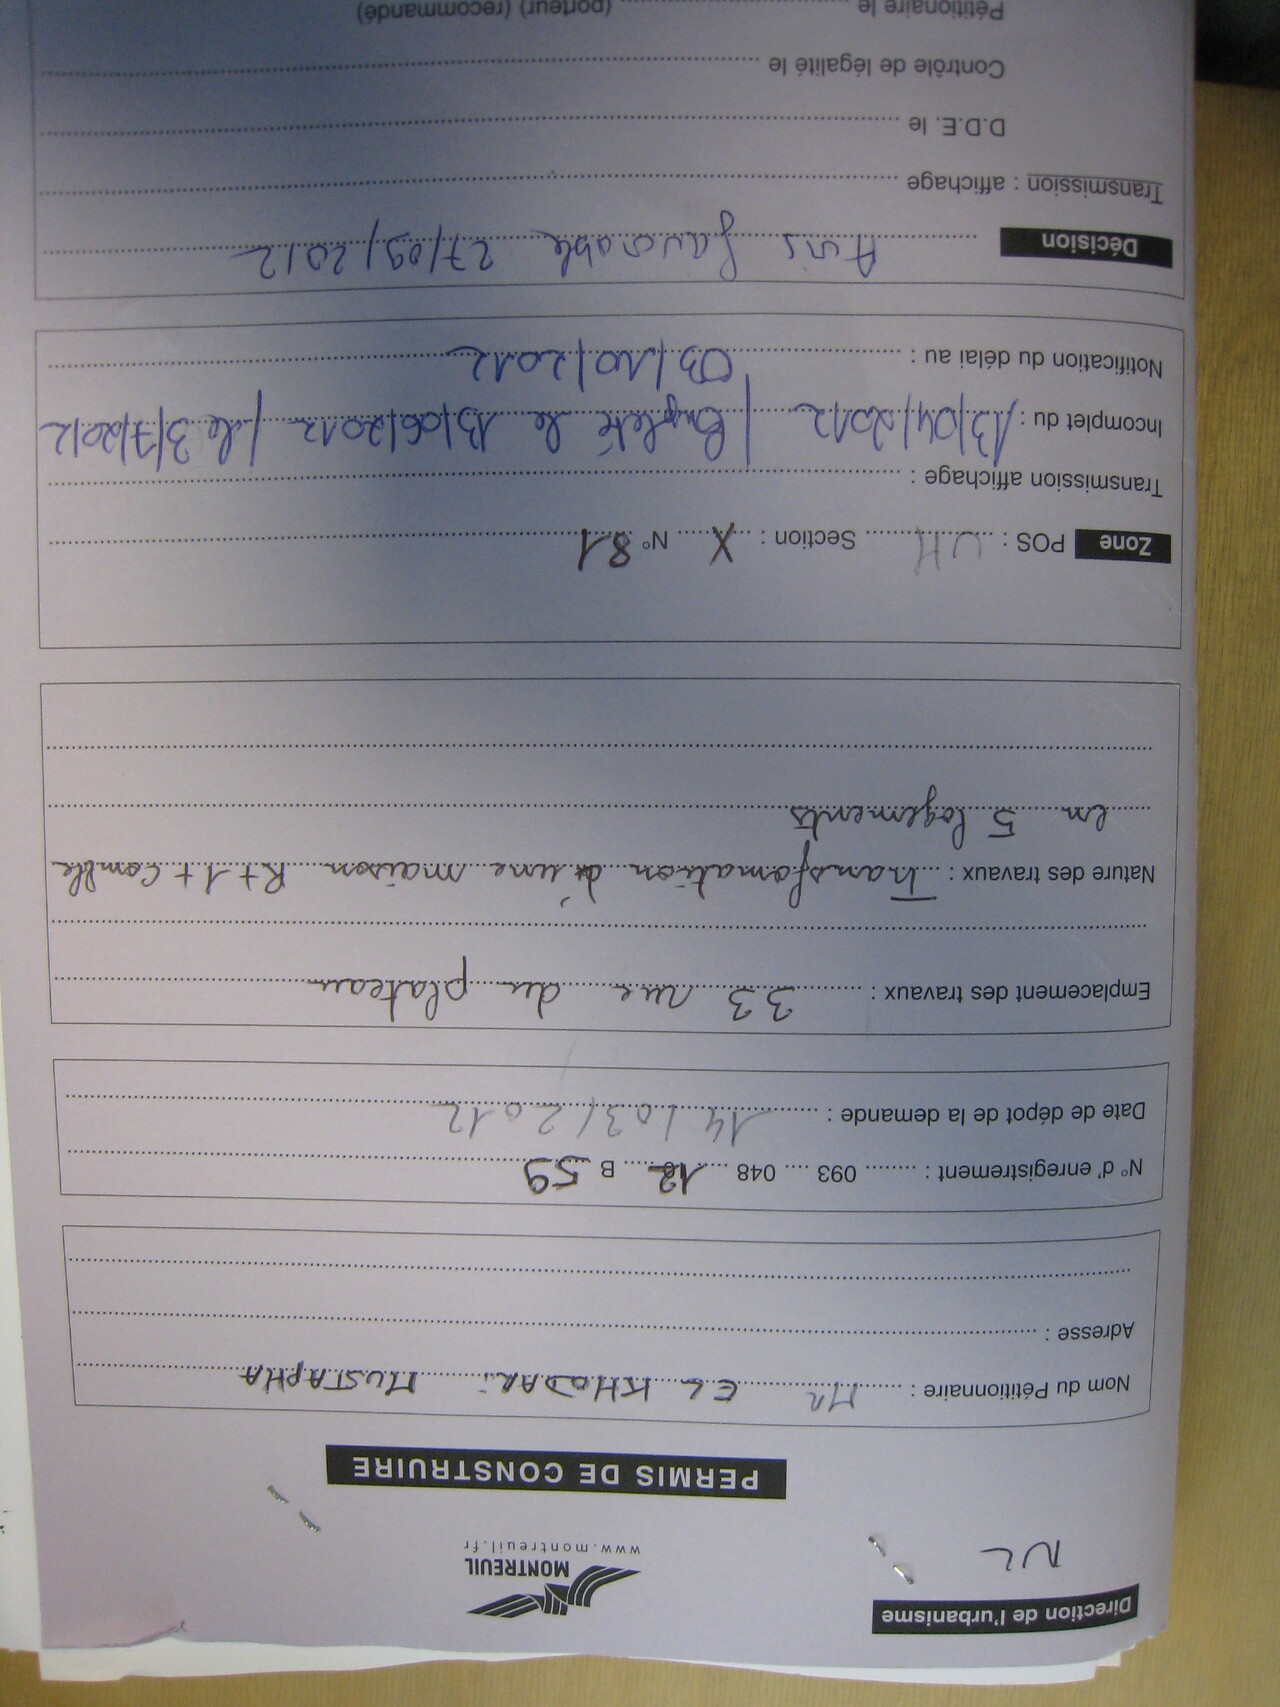 Direction de l'urbanisme
NL
MONTREUIL
www.montreuil.fr
PERMIS DE CONSTRUIRE
Nom du Pétitionnaire : Mr EL KHODARi MUSTAPHA
Adresse :
N° d'enregistrement : 093 048 12 B 59
Date de dépot de la demande : 14/03/2012
Emplacement des travaux : 33 rue du plateau
Nature des travaux : Transformation d'une maison R+1+Comble
en 5 logements
Zone POS : UH Section : X N° 81
Transmission affichage :
Incomplet du : 13/04/2012 / Complété le 13/06/2012 / le 3/7/2012
Notification du délai au : 03/10/2012
Décision Avis favorable 27/09/2012
Transmission : affichage
D.D.E. le
Contrôle de légalité le
Pétitionaire le (porteur) (recommandé)